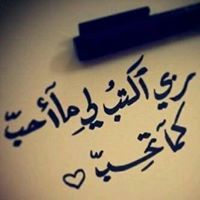 ربي أكتبُ لي مآ أحبّ
كمآ تحبّ